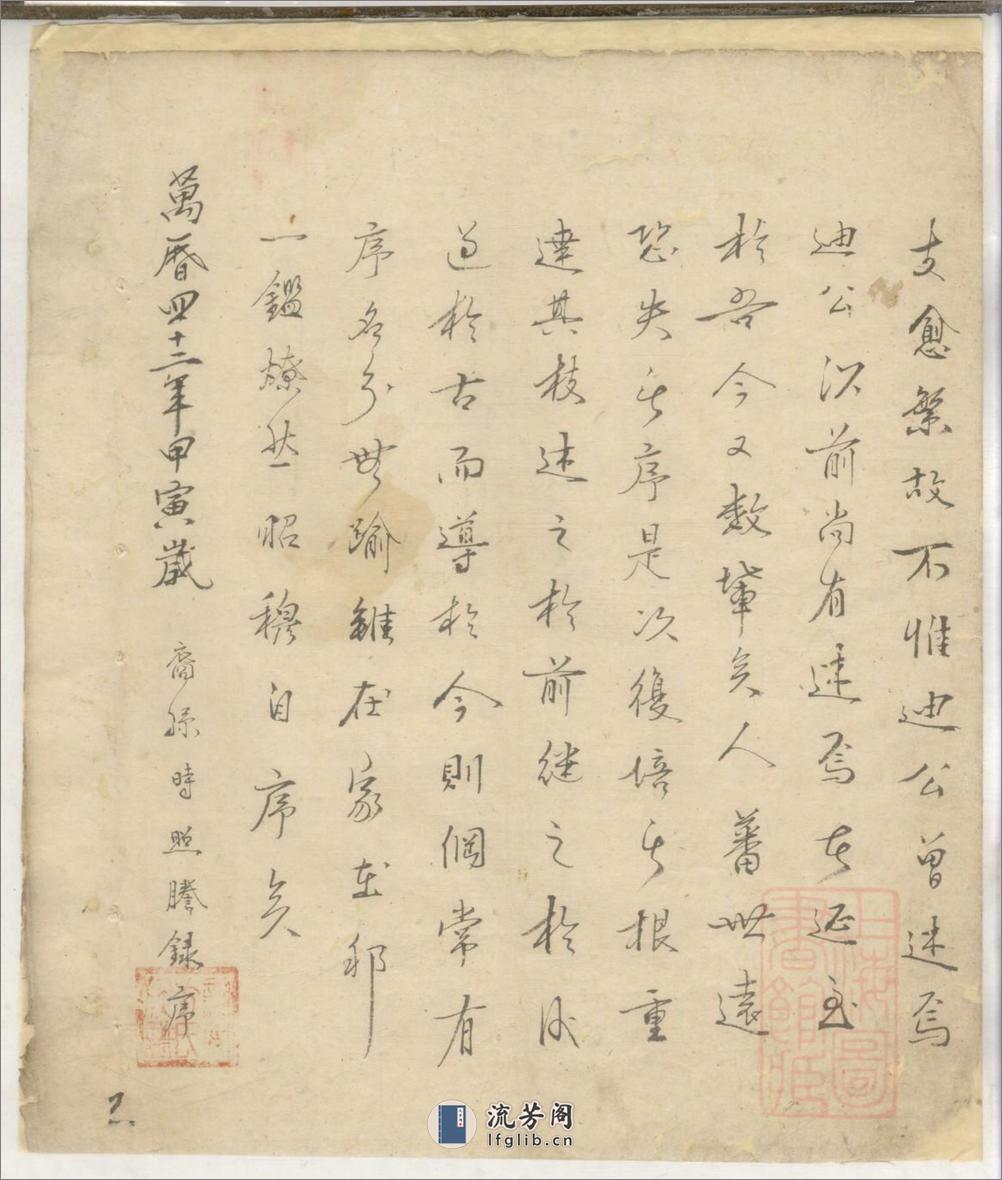 支愈繁故不惟迪公曾述焉
迪公以前尚有述焉者延至
於吾今又数輩矣人蕃世遠
恐失其序是次復培其根重
達其枝述之於前継之於後
過於古而導於今則倫常有
序名分無踰雖在家在邦
一鑑燎然昭穆自序矣
萬曆四十二年甲寅歲 裔孫時照謄録序
上海圖書館藏
流芳阁
lfglib.cn